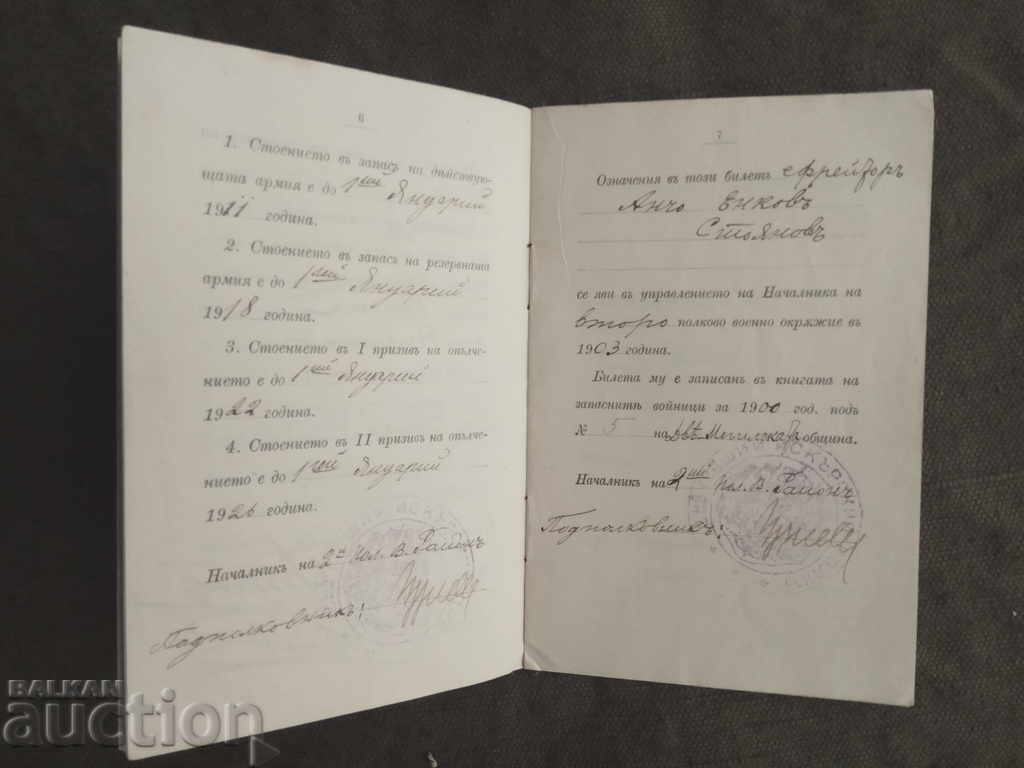 6
1. Стоението въ запасъ на дѣйствую-
щата армия е до 1ший Януарий
1911 година.
2. Стоението въ запасъ на резервната
армия е до 1ший Януарий
1918 година.
3. Стоението въ I призивъ на опълче-
нието е до 1ший Януарий
1922 година.
4. Стоението въ II призивъ на опълче-
нието е до 1ший Януарий
1926 година.
Началникъ на 2й Пол. В. Районъ
Подполковникъ:
7
Означения въ този билетъ ефрейторъ
Анчо Енковъ
Стояновъ
се яви въ управлението на Началника на
второ полково военно окрѫжие въ
1903 година.
Билета му е записанъ въ книгата на
запаснитѣ войници за 1900 год. подъ
№ 5 на Двѣ Могилска община.
Началникъ на 2ий Пол. В. Районъ
Подполковникъ:
BALKAN
auction